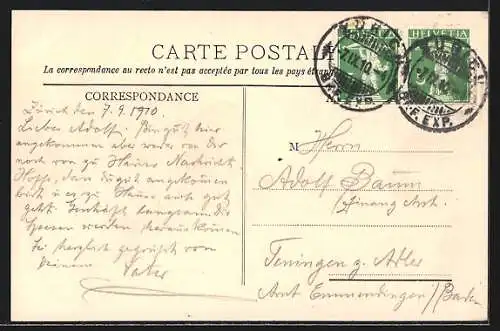 CARTE POSTALE
La correspondance au recto n'est pas acceptée par tous les pays étrang
CORRESPONDANCE
HELVETIA
ZÜRICH
7.IX.10
BRF. EXP.
HELVETIA
BRF. EXP.
Zürich den 7.9.1910.
Lieber Adolf! Bin gut hier
angekommen aber weder von dir
noch von zu Hause Nachricht
Hoffe, dass du gut angekommen
bist u. es zu Hause auch gut
geht. Geschäft langsam die
Spesen werden herauskommen
Sei herzlich gegrüsst von
Deinem Vater
M
Herrn
Adolf Baum
Teningen z. Adler
Amt Emmendingen i/Baden